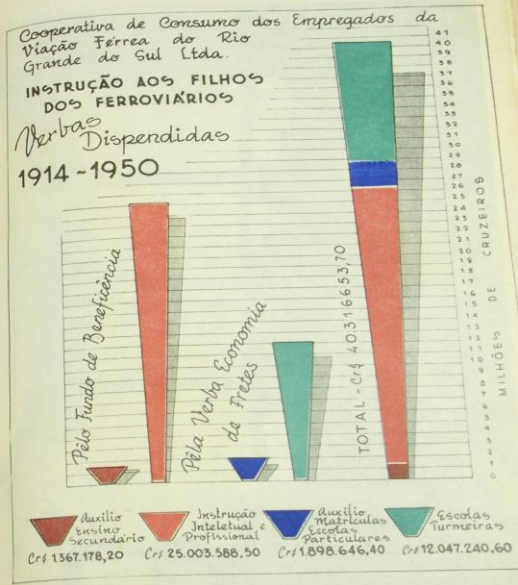 Cooperativa de Consumo dos Empregados da
Viação Férrea do Rio
Grande do Sul Ltda.
INSTRUÇÃO AOS FILHOS
DOS FERROVIÁRIOS
Verbas
Dispendidas
1914-1950
Pélo Fundo de Beneficência
Péla Verba Economia
de Fretes
TOTAL-Cr$ 40.316653,70
41
40
39
38
37
36
35
34
33
32
31
30
29
28
27
26
25
24
23
22
21
20
19
18
17
16
15
14
13
12
11
10
9
8
7
6
5
4
3
2
1
0
MILHÕES DE CRUZEIROS
Auxilio
Ensino
Secundário
Cr$ 1.367.178,20
Instrução
Inteletual e
Profissional
Cr$ 25.003.588,50
Auxilio
Matrículas
Escolas
Particulares
Cr$ 1.898.646,40
Escolas
Turmeiras
Cr$ 12.047.240.60